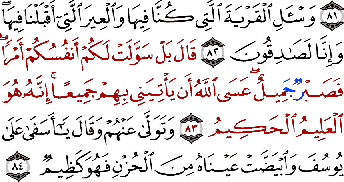 ﴿٨١﴾ وَسْـَٔلِ ٱلْقَرْيَةَ ٱلَّتِى كُنَّا فِيهَا وَٱلْعِيرَ ٱلَّتِىٓ أَقْبَلْنَا فِيهَا ۖ
وَإِنَّا لَصَٰدِقُونَ ﴿٨٢﴾ قَالَ بَلْ سَوَّلَتْ لَكُمْ أَنفُسُكُمْ أَمْرًا ۖ
فَصَبْرٌ جَمِيلٌ ۖ عَسَى ٱللَّهُ أَن يَأْتِيَنِى بِهِمْ جَمِيعًا ۚ إِنَّهُۥ هُوَ
ٱلْعَلِيمُ ٱلْحَكِيمُ ﴿٨٣﴾ وَتَوَلَّىٰ عَنْهُمْ وَقَالَ يَٰٓأَسَفَىٰ عَلَىٰ
يُوسُفَ وَٱبْيَضَّتْ عَيْنَاهُ مِنَ ٱلْحُزْنِ فَهُوَ كَظِيمٌ ﴿٨٤﴾